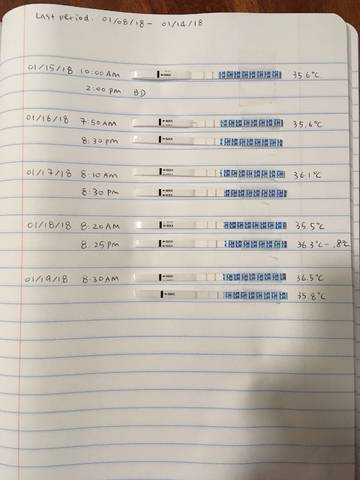 Last period: 01/08/18 – 01/14/18
01/15/18 10:00 AM 35.6°C
2:00 pm BD
01/16/18 7:50 AM 35.6°C
8:30 pm
01/17/18 8:10 AM 36.1°C
8:30 pm
01/18/18 8:20 AM 35.5°C
8:25 pm 36.3°C – .8°C
01/19/18 8:30 AM 36.5°C
35.8°C